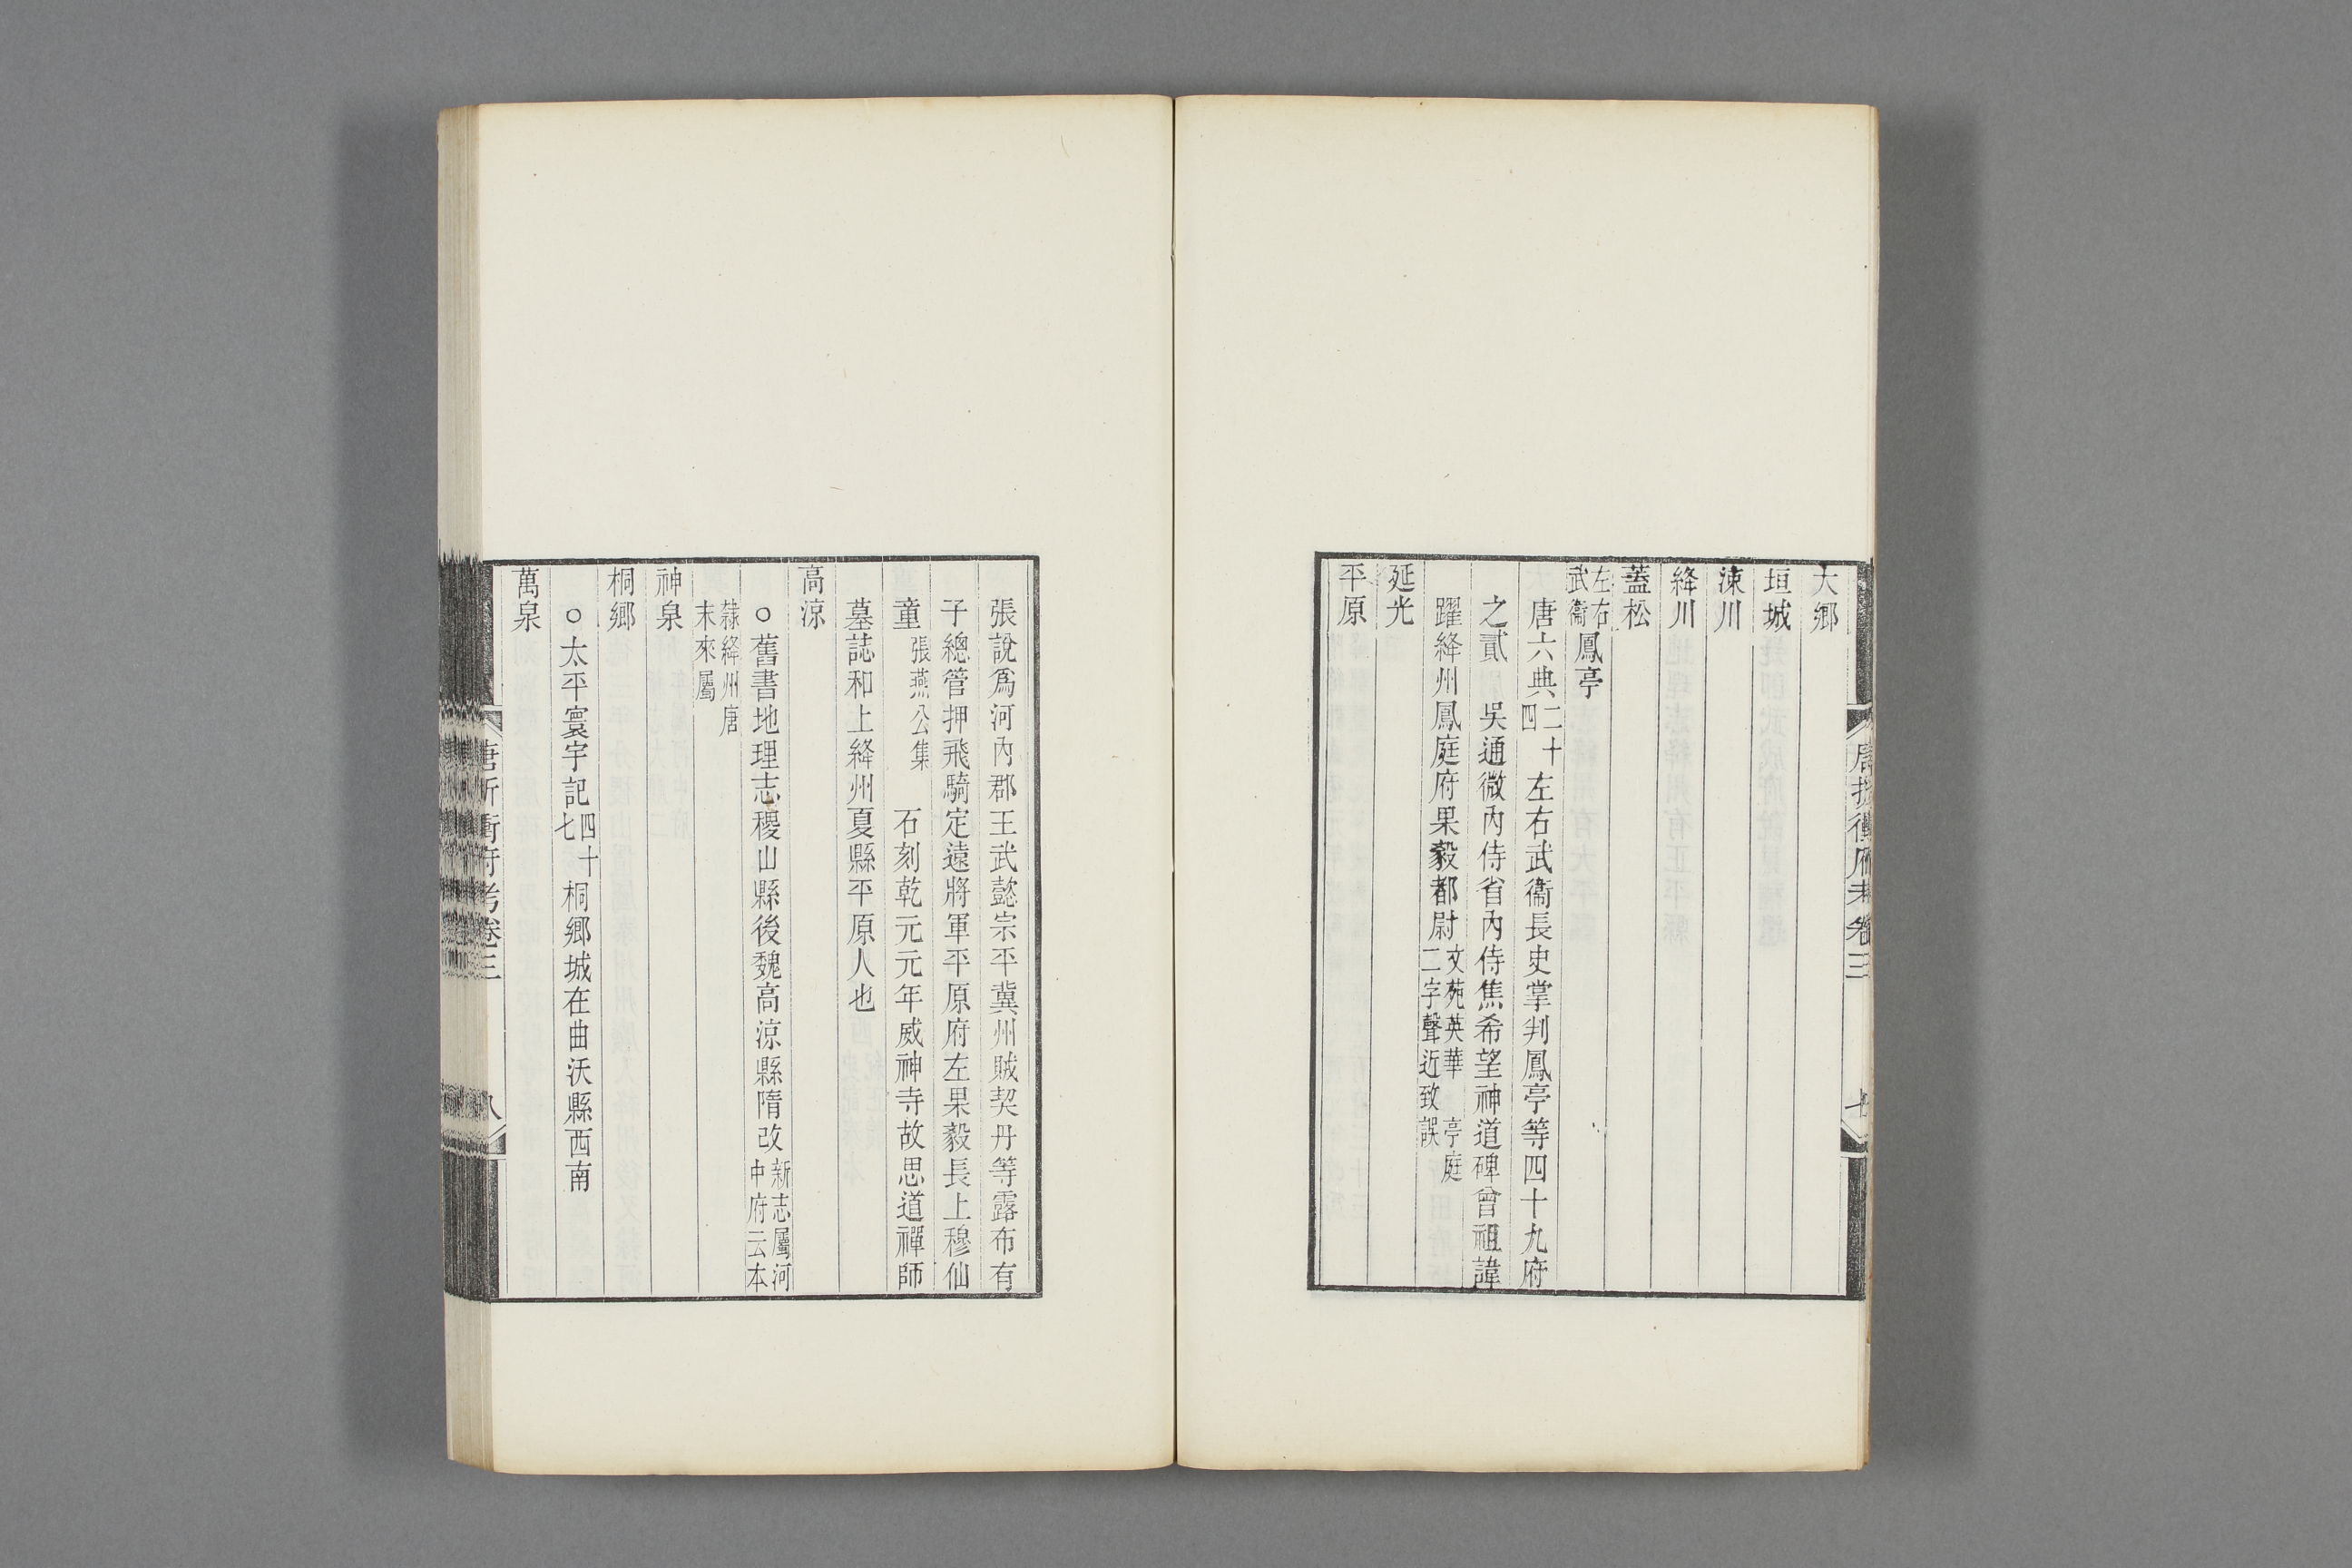 大鄉
垣城
涑川
絳川
蓋松
左右武衞鳳亭
唐六典二十四左右武衞長史掌判鳳亭等四十九府
之貳 吳通微內侍省內侍焦希望神道碑曾祖諱
躍絳州鳳庭府果毅都尉文苑英華 亭庭二字聲近致誤
延光
平原
張說爲河內郡王武懿宗平冀州賊契丹等露布有
子總管押飛騎定遠將軍平原府左果毅長上穆仙
童張燕公集 石刻乾元元年威神寺故思道禪師
墓誌和上絳州夏縣平原人也
高涼
○舊書地理志稷山縣後魏高涼縣隋改新志屬河中府云本
隸絳州唐末來屬
神泉
桐鄉
○太平寰宇記四十七桐鄉城在曲沃縣西南
萬泉
唐折衝府考卷三
八